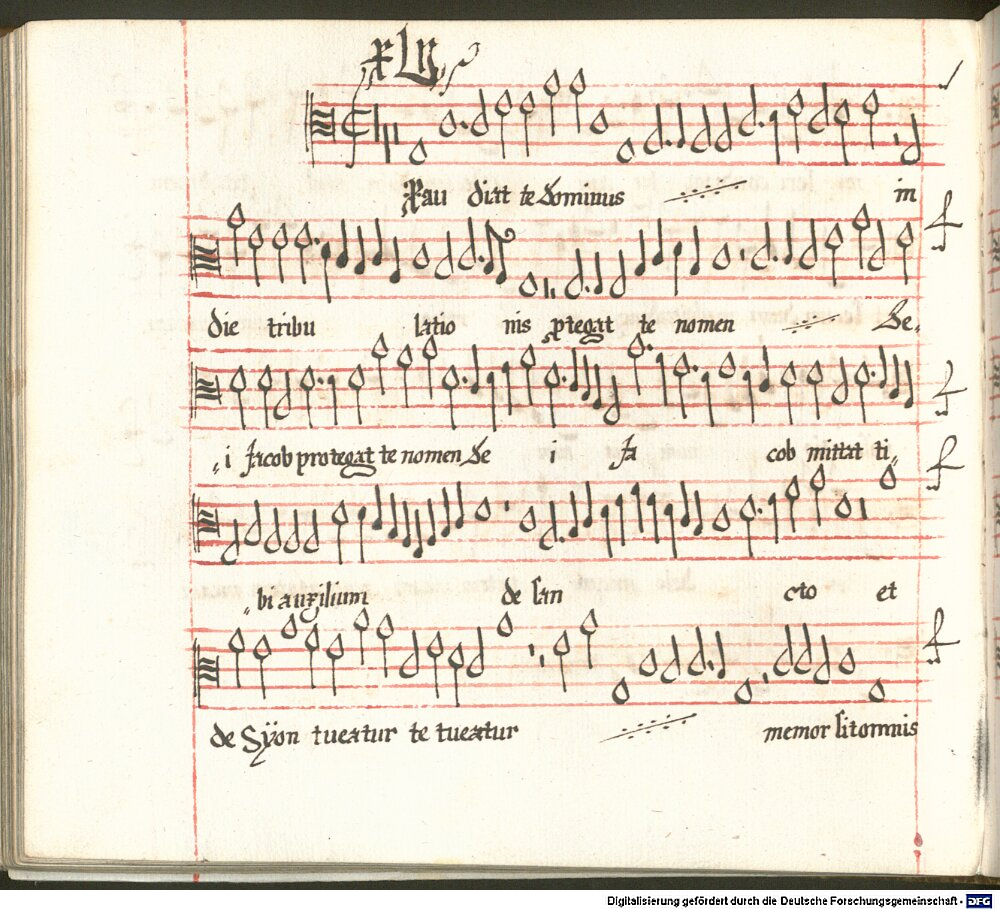 xlv
Exau diat te dominus in
die tribu latio nis ptegat te nomen de-
i Jacob protegat te nomen de i Ja cob mittat ti-
bi auxilium de san cto et
de Syon tueatur te tueatur memor sit omnis
Digitalisierung gefördert durch die Deutsche Forschungsgemeinschaft - DFG